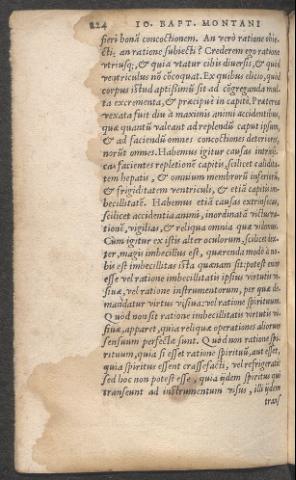 224 IO. BAPT. MONTANI
fieri bonã concoctionem. An verò ratione obie-
cti: an ratione subiecti? Crederem ego ratione
vtriusq;, & quia vtatur cibis diuersis, & quia
ventriculus nõ cõcoquat. Ex quibus elicio, quid
corpus istud aptissimũ sit ad cõgreganda mul-
ta excrementa, & præcipuè in capite. Præterea
vexata fuit diu à maximis animi accidentibus,
quæ quantũ valeant ad replendũ caput ipsum,
& ad faciendũ omnes concoctiones deteriores,
norũt omnes. Habemus igitur causas intrinse-
cas facientes repletionē capitis, scilicet calidita-
tem hepatis, & omnium membrorũ inferiorũ,
& frigiditatem ventriculi, & etiã capitis im-
becillitatē. Habemus etiã causas extrinsecas,
scilicet accidentia animi, inordinatã victus ra-
tionē, vigilias, & reliqua omnia quæ vidimus.
Cùm igitur ex istis alter oculorum, scilicet dex-
ter, magis imbecillus est, quærendū modò à no-
bis est imbecillitas ista quænam sit: potest enim
esse vel ratione imbecillitatis ipsius virtutis vi-
siuæ, vel ratione instrumentorum, per quæ de-
mandatur virtus visiua: vel ratione spirituum.
Quòd non sit ratione imbecillitatis virtutis vi-
siuæ, apparet, quia reliquæ operationes aliorum
sensuum perfectæ sunt. Quòd non ratione spi-
rituum, quia si esset ratione spirituũ, aut esset,
quia spiritus essent crassefacti, vel refrigerati:
sed hoc non potest esse, quia ijdem spiritus qui
transeunt ad instrumentum visus, illi ijdem
trans